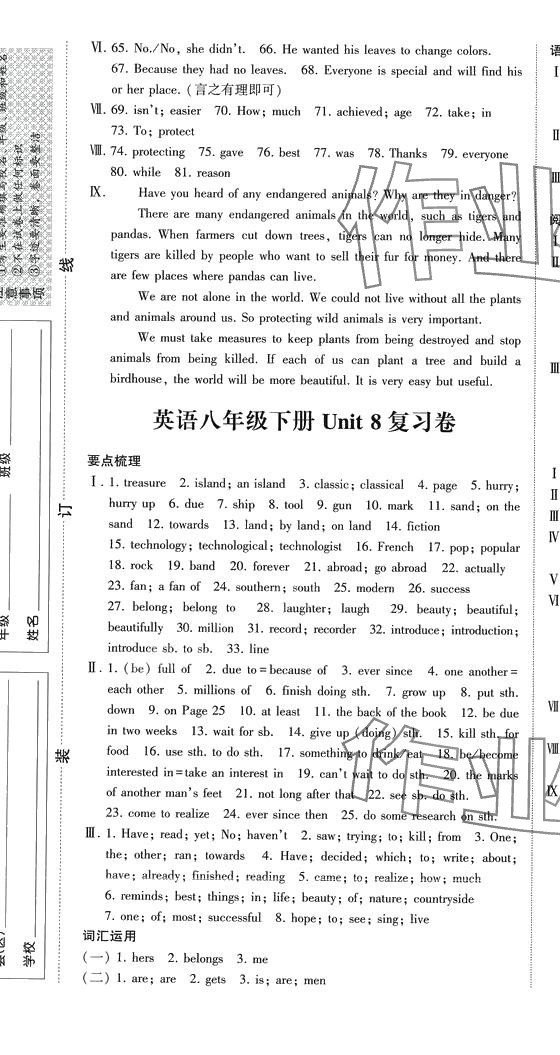 Ⅵ. 65. No./No, she didn't. 66. He wanted his leaves to change colors.
67. Because they had no leaves. 68. Everyone is special and will find his
or her place. (言之有理即可)
Ⅶ. 69. isn't; easier 70. How; much 71. achieved; age 72. take; in
73. To; protect
Ⅷ. 74. protecting 75. gave 76. best 77. was 78. Thanks 79. everyone
80. while 81. reason
Ⅸ. Have you heard of any endangered animals? Why are they in danger?
There are many endangered animals in the world, such as tigers and
pandas. When farmers cut down trees, tigers can no longer hide. Many
tigers are killed by people who want to sell their fur for money. And there
are few places where pandas can live.
We are not alone in the world. We could not live without all the plants
and animals around us. So protecting wild animals is very important.
We must take measures to keep plants from being destroyed and stop
animals from being killed. If each of us can plant a tree and build a
birdhouse, the world will be more beautiful. It is very easy but useful.
英语八年级下册 Unit 8 复习卷
要点梳理
Ⅰ. 1. treasure 2. island; an island 3. classic; classical 4. page 5. hurry;
hurry up 6. due 7. ship 8. tool 9. gun 10. mark 11. sand; on the
sand 12. towards 13. land; by land; on land 14. fiction
15. technology; technological; technologist 16. French 17. pop; popular
18. rock 19. band 20. forever 21. abroad; go abroad 22. actually
23. fan; a fan of 24. southern; south 25. modern 26. success
27. belong; belong to 28. laughter; laugh 29. beauty; beautiful;
beautifully 30. million 31. record; recorder 32. introduce; introduction;
introduce sb. to sb. 33. line
Ⅱ. 1. (be) full of 2. due to=because of 3. ever since 4. one another=
each other 5. millions of 6. finish doing sth. 7. grow up 8. put sth.
down 9. on Page 25 10. at least 11. the back of the book 12. be due
in two weeks 13. wait for sb. 14. give up (doing) sth. 15. kill sth. for
food 16. use sth. to do sth. 17. something to drink/eat 18. be/become
interested in=take an interest in 19. can't wait to do sth. 20. the marks
of another man's feet 21. not long after that 22. see sb. do sth.
23. come to realize 24. ever since then 25. do some research on sth.
Ⅲ. 1. Have; read; yet; No; haven't 2. saw; trying; to; kill; from 3. One;
the; other; ran; towards 4. Have; decided; which; to; write; about;
have; already; finished; reading 5. came; to; realize; how; much
6. reminds; best; things; in; life; beauty; of; nature; countryside
7. one; of; most; successful 8. hope; to; see; sing; live
词汇运用
(一) 1. hers 2. belongs 3. me
(二) 1. are; are 2. gets 3. is; are; men
线
订
装
班级
年级
姓名
学校
②不在试卷上做任何标记
意事项
作业
作业